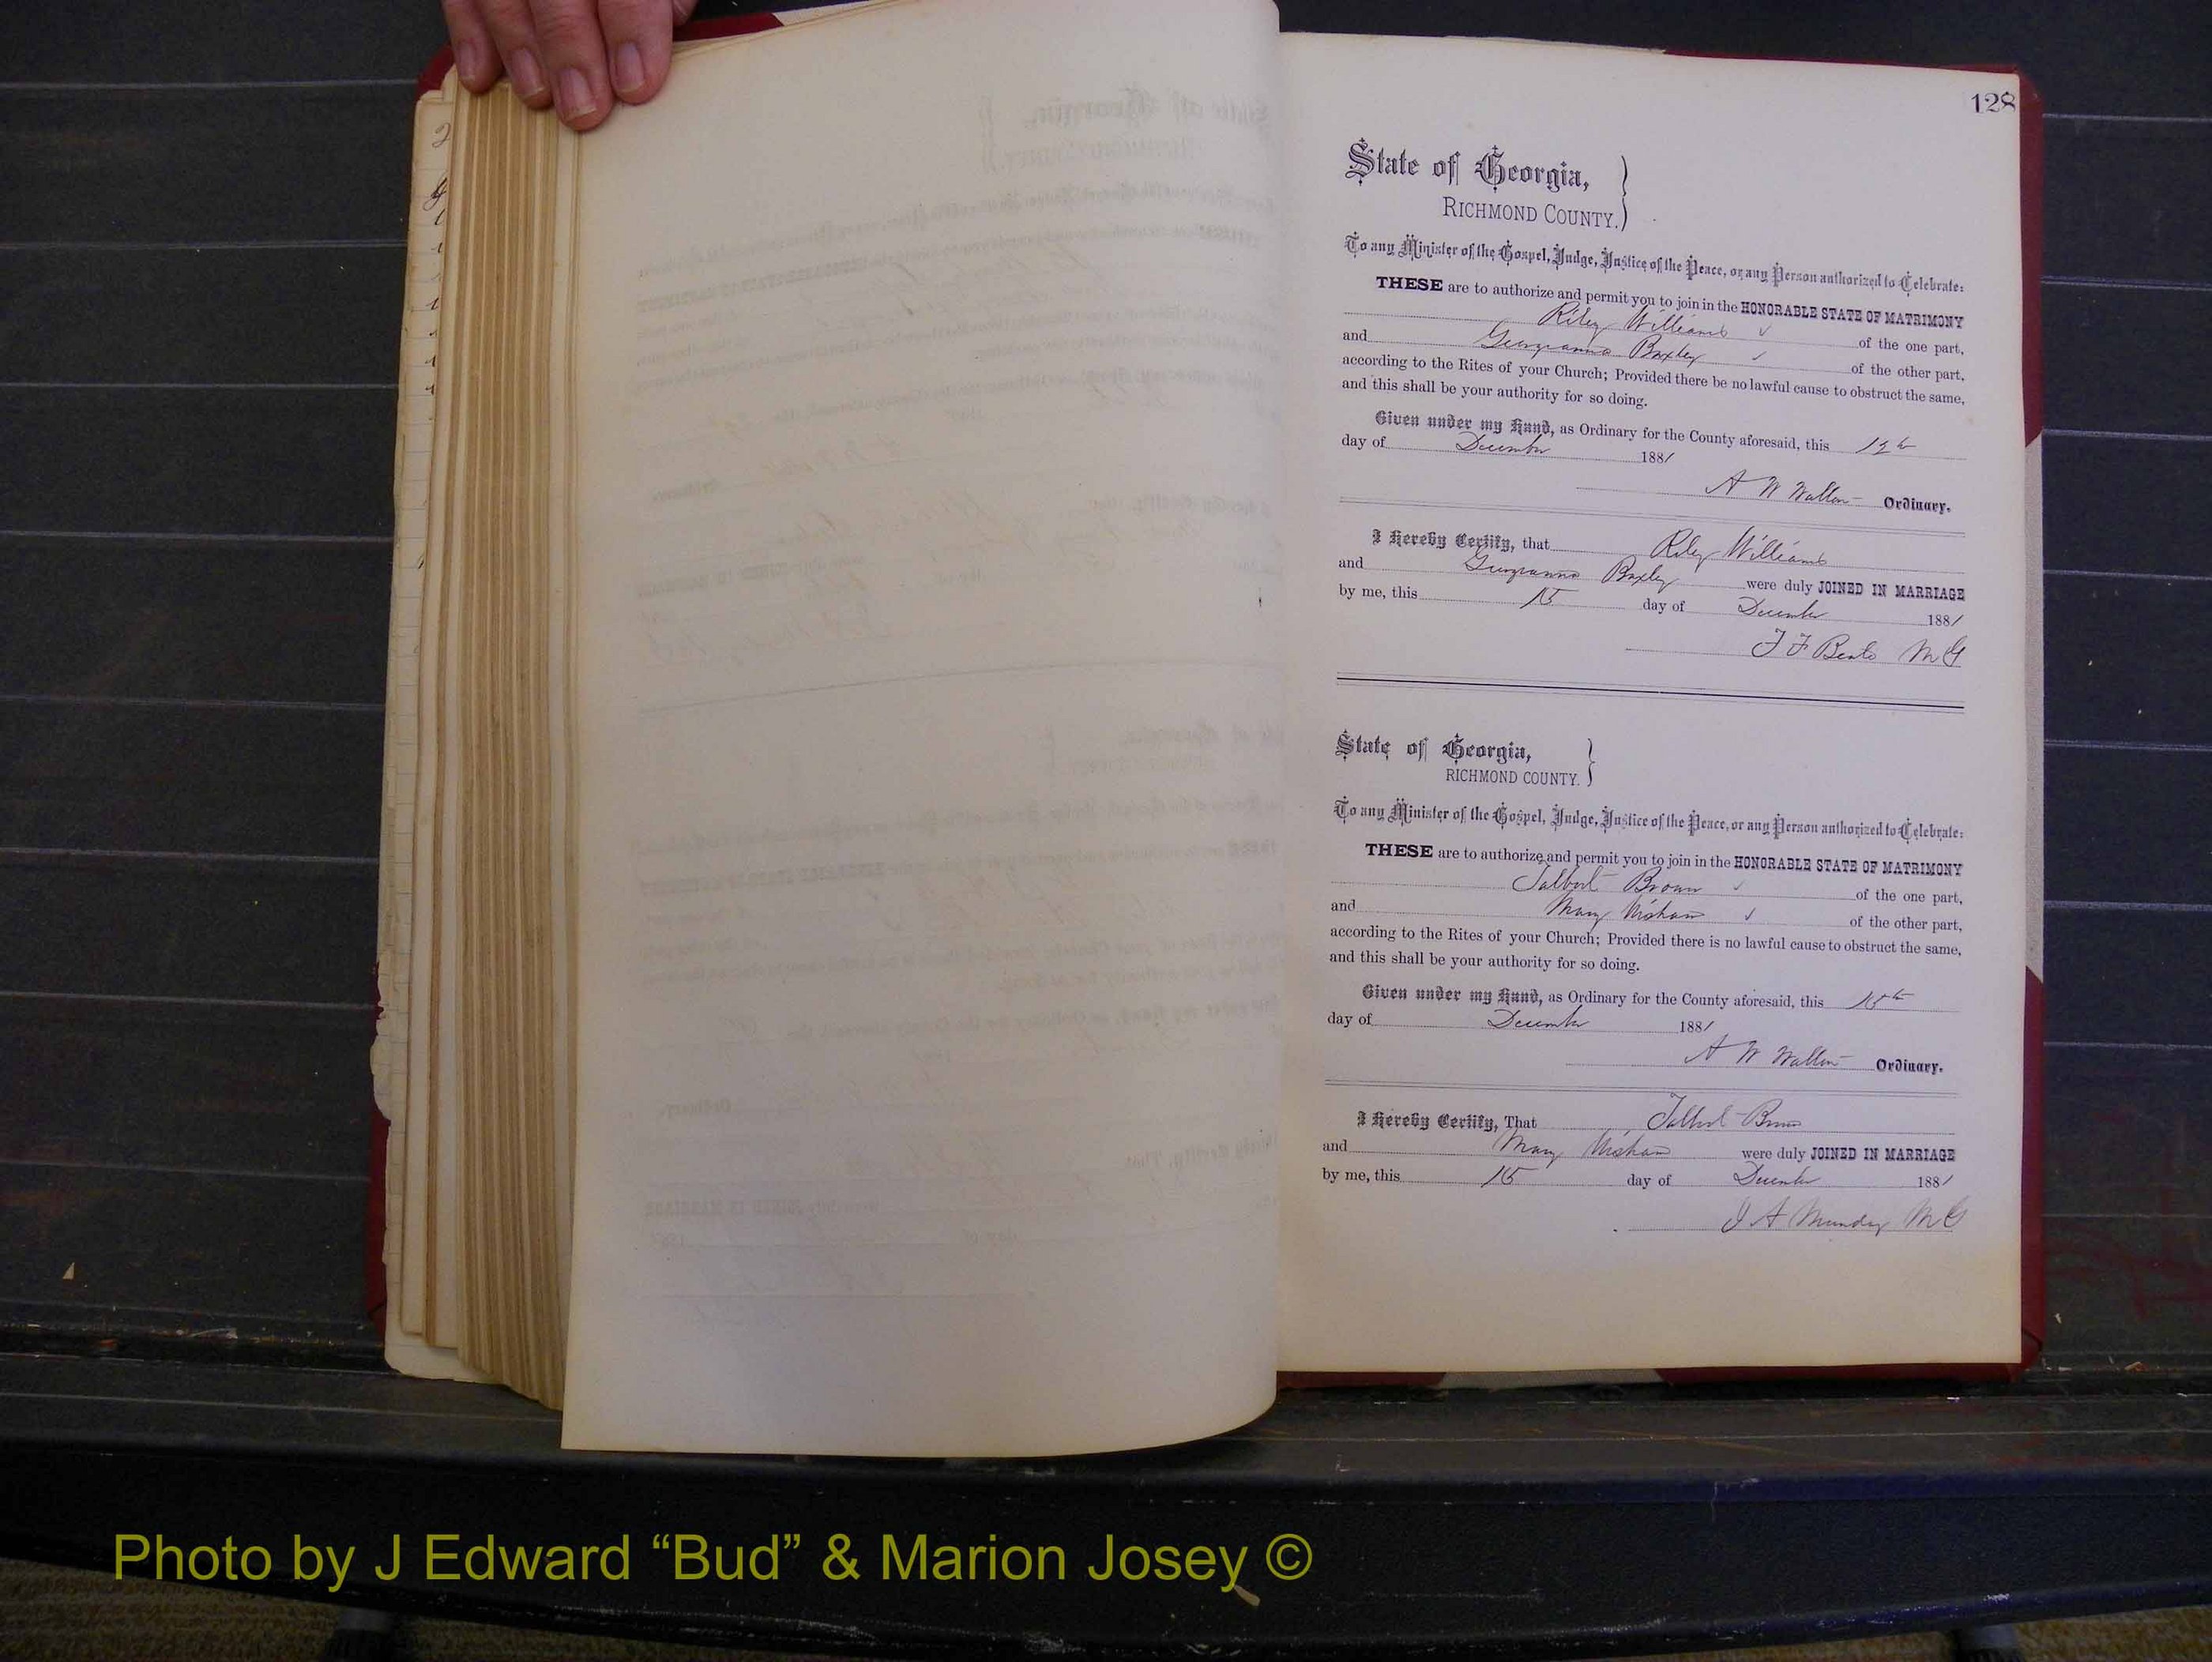 128
State of Georgia,
RICHMOND COUNTY.
To any Minister of the Gospel, Judge, Justice of the Peace, or any Person authorized to Celebrate:
THESE are to authorize and permit you to join in the HONORABLE STATE OF MATRIMONY
Riley Williams of the one part,
and Georgianna Baxley of the other part,
according to the Rites of your Church; Provided there be no lawful cause to obstruct the same,
and this shall be your authority for so doing.
Given under my Hand, as Ordinary for the County aforesaid, this
day of December 1881
A W Walton Ordinary.
I Hereby Certify, that Riley Williams
and Georgianna Baxley were duly JOINED IN MARRIAGE
by me, this 15 day of December 1881
MG
State of Georgia,
RICHMOND COUNTY.
To any Minister of the Gospel, Judge, Justice of the Peace, or any Person authorized to Celebrate:
THESE are to authorize and permit you to join in the HONORABLE STATE OF MATRIMONY
Talbert Brown of the one part,
and Mary of the other part,
according to the Rites of your Church; Provided there is no lawful cause to obstruct the same,
and this shall be your authority for so doing.
Given under my Hand, as Ordinary for the County aforesaid, this 15th
day of December 1881
A W Walton Ordinary.
I Hereby Certify, That Talbert Brown
and Mary were duly JOINED IN MARRIAGE
by me, this 15 day of December 1881
Mundy MG
Photo by J Edward “Bud” & Marion Josey ©